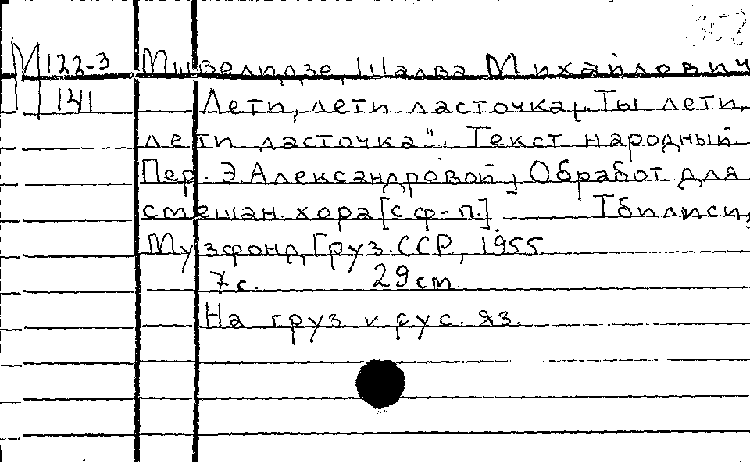 М 122-3 Мшвелидзе, Шалва Михайлович
141 Лети, лети ласточка „Ты лети,
лети ласточка". Текст народный
Пер. Э. Александровой, Обработ для
смешан. хора [с ф-п.] Тбилиси,
Музфонд, Груз. ССР, 1955
7 с. 29 cm
На груз и рус яз.